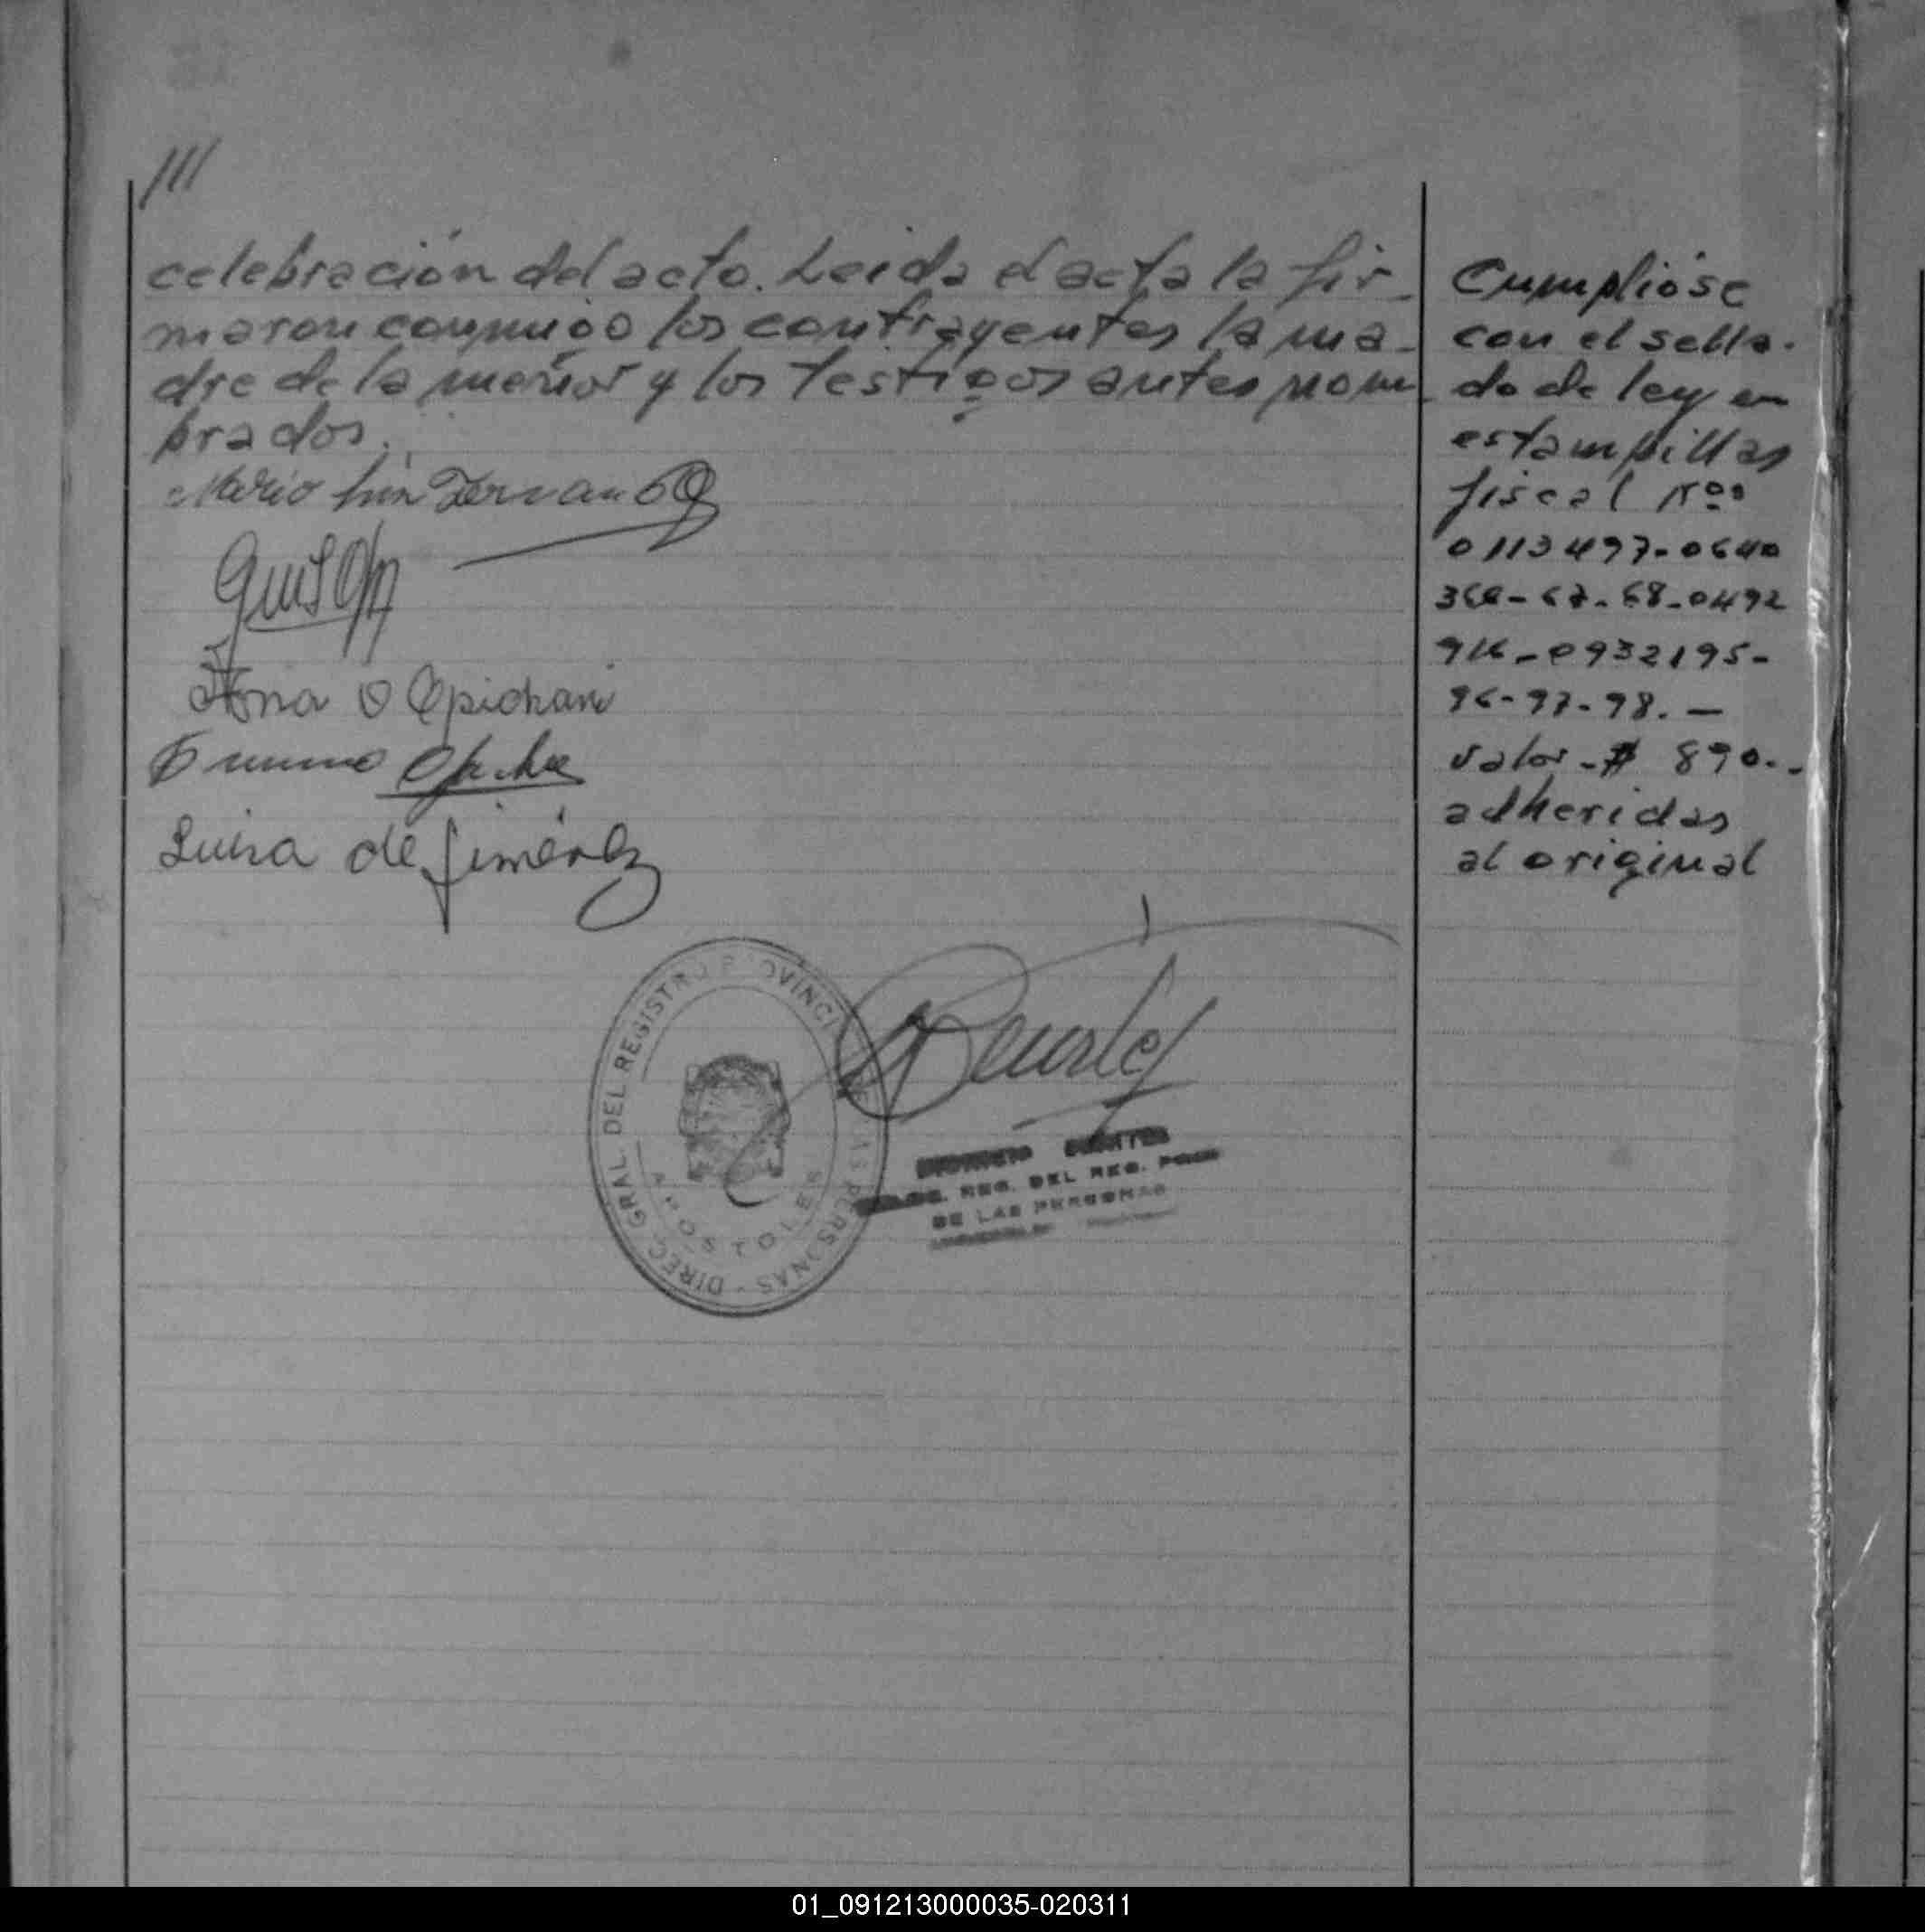 ///
celebración del acto. Leida el acta la fir-
maron conmigo los contrayentes la ma-
dre de la menor y los testigos antes nom-
brados.
Mario
Ana O
Luisa de Jiménez
Cumplióse
con el sella-
do de ley en
estampillas
fiscal Nos
0113497-0640
366-67-68-0492
916-0932195-
96-97-98.-
valor-$ 890.-
adheridas
al original
DIREC. GRAL. DEL REGISTRO PROVINCIAL DE LAS PERSONAS -
APOSTOLES
REG. DEL REG. PROV.
DE LAS PERSONAS
01_091213000035-020311